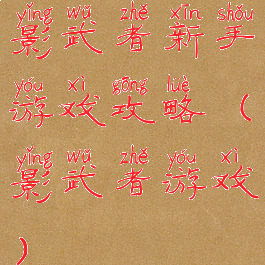 yǐng wǔ zhě xīn shǒu
影武者新手
yóu xì gōng lüè
游戏攻略（
yǐng wǔ zhě yóu xì
影武者游戏
）